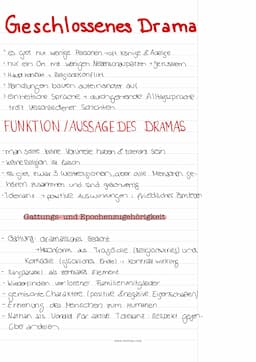 Geschlossenes Drama
- es gibt nur wenige Personen → oft Könige & Adlige
- nur ein Ort mit wenigen Nebenschauplätzen → Jerusalem
- Hauptkonflikt = Religionskonflikt
- Handlungen bauen aufeinander auf
- einheitliche Sprache → durchgehende Alltagssprache
trotz verschiedener Schichten
FUNKTION/AUSSAGE DES DRAMAS
- man sollte keine Vorurteile haben & tolerant sein
- keine Religion ist falsch
- es gibt zwar 3 Weltreligionen, aber alle Menschen ge-
hören zusammen und sind gleichwertig
- Toleranz → positive Auswirkungen: friedliches
Gattungs- und Epochenzugehörigkeit
- Gattung: dramatisches Gedicht
→ Mischform aus Tragödie (Religionskrieg) und
Komödie (glückliches Ende) →
- Ringparabel als zentrales Element
- Wiederfinden verlorener Familienmitglieder
- gemischte Charaktere (positive & negative Eigenschaften)
- Erziehung des Menschen zum Humanen
- Nathan als Vorbild für aktive Toleranz: Respekt gegen-
über anderen